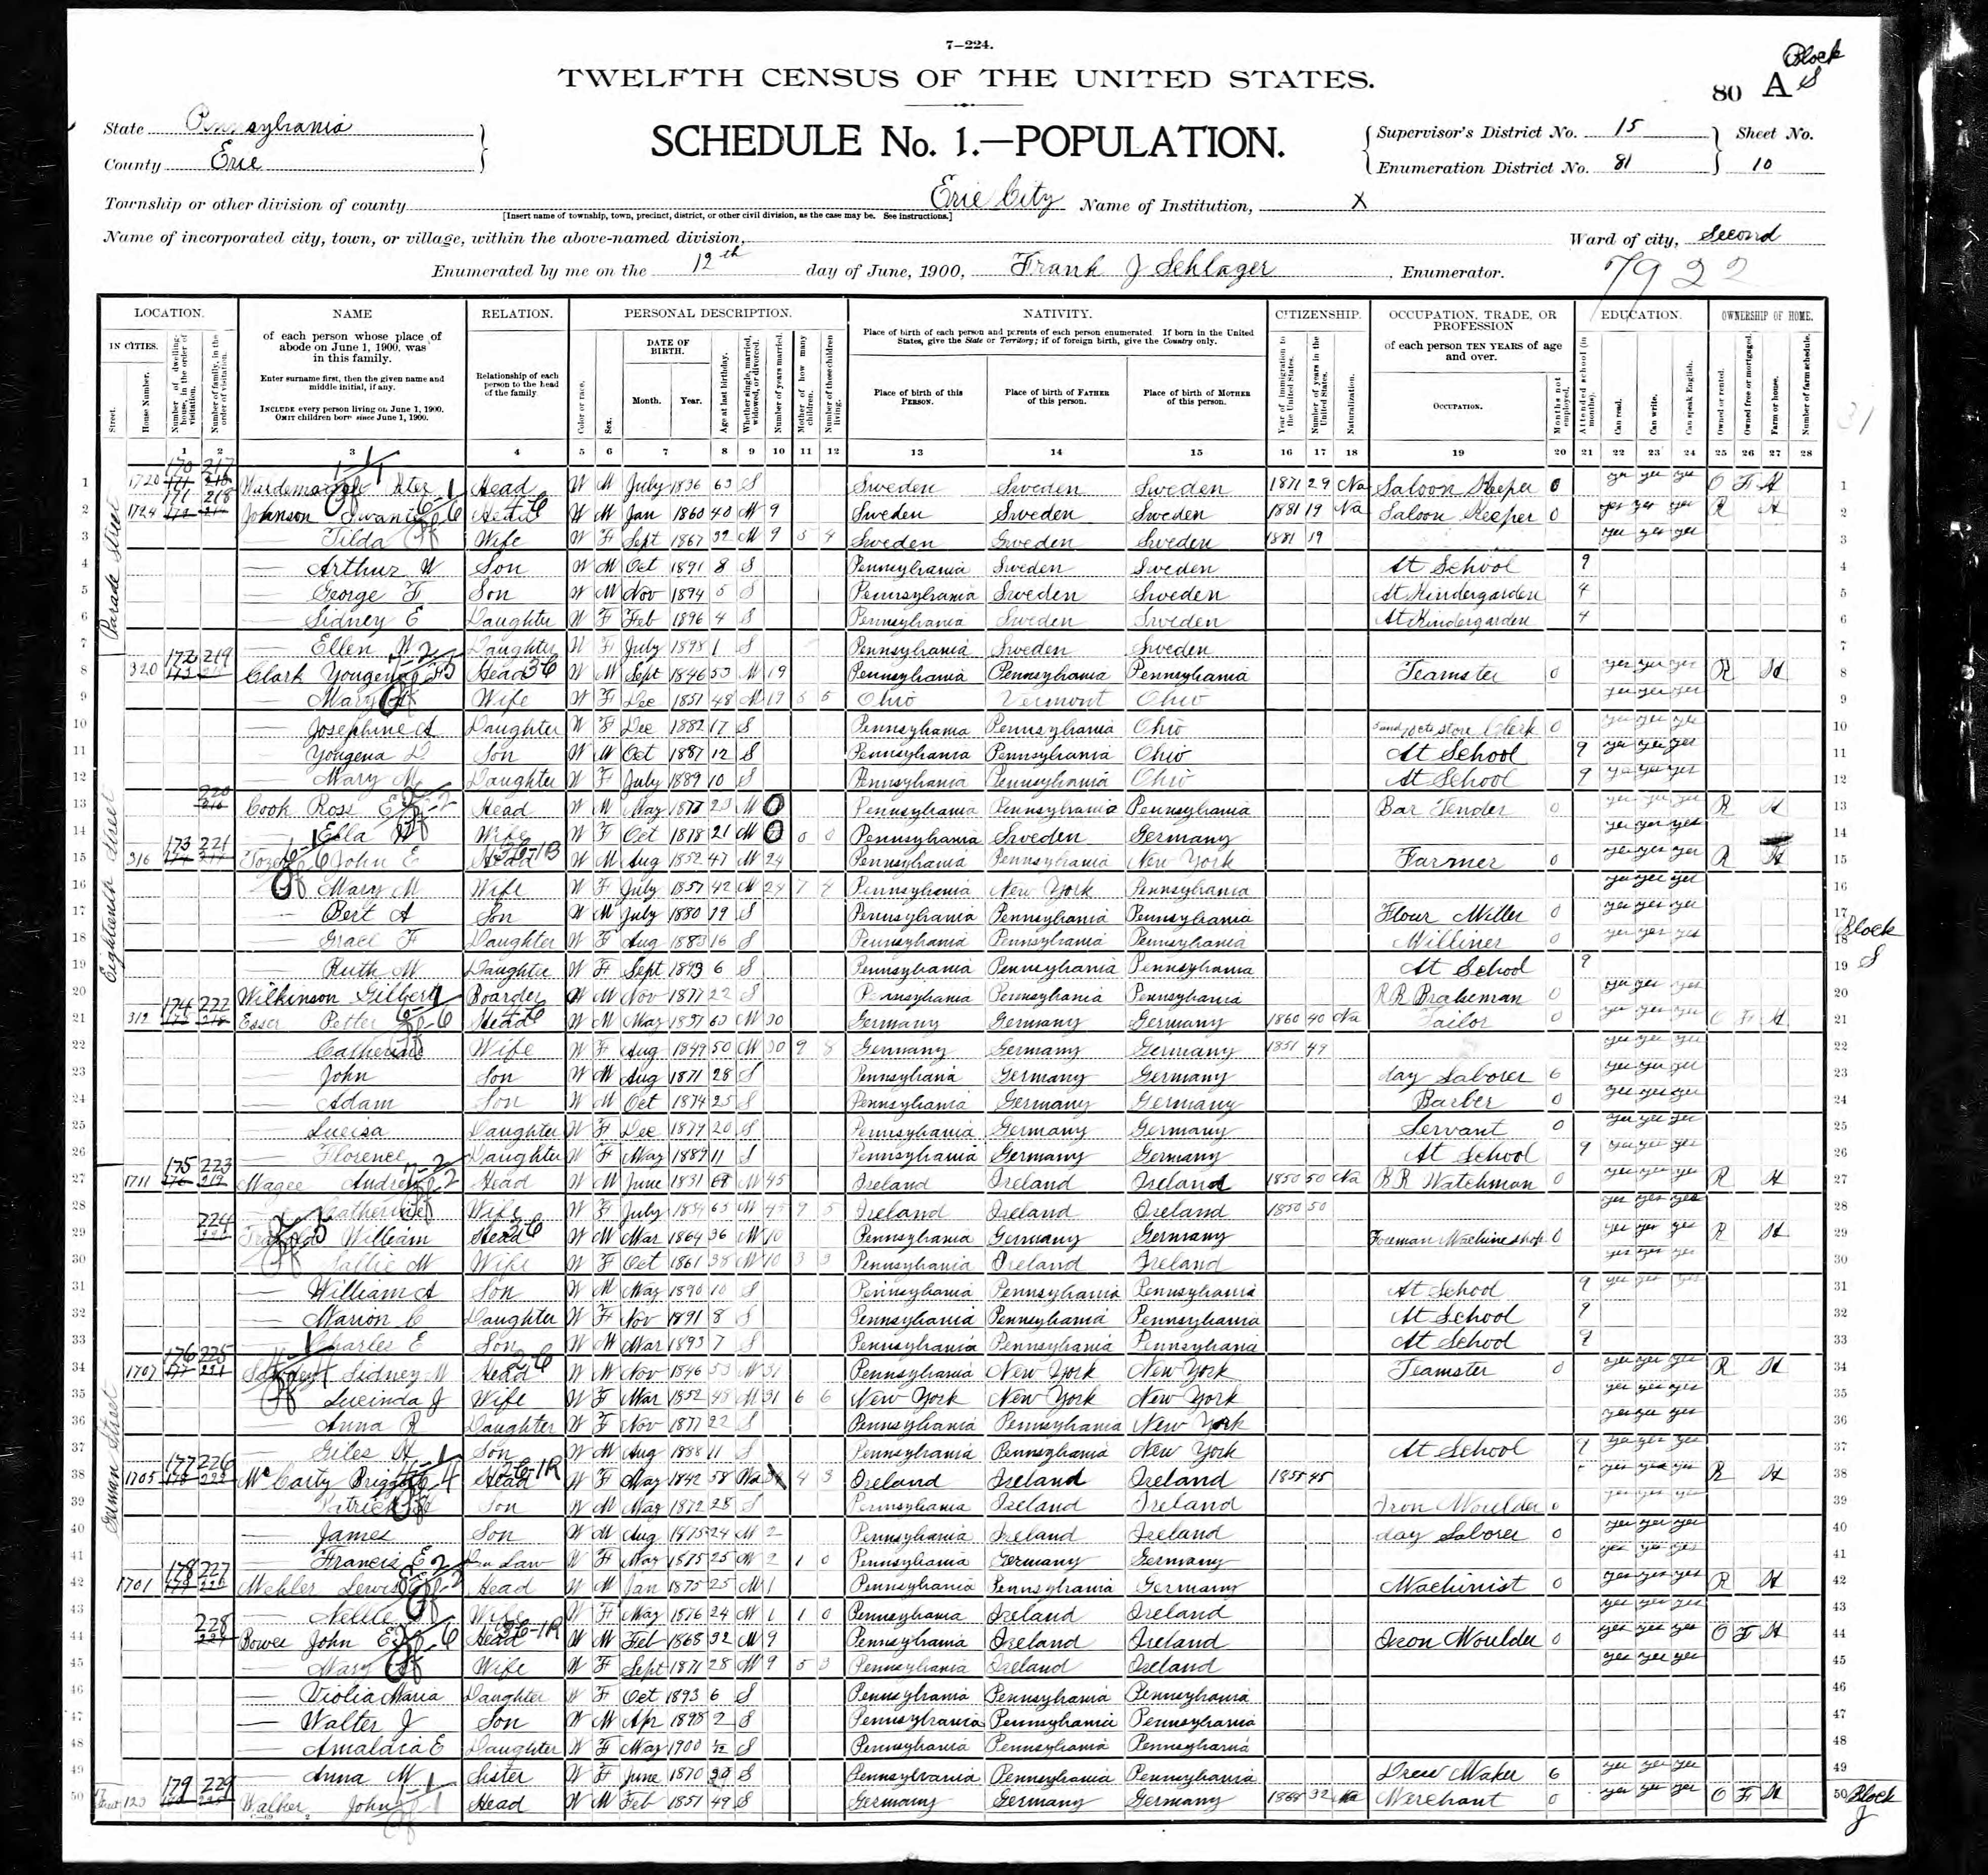 7—224.
TWELFTH CENSUS OF THE UNITED STATES.
Block
S
80 A
State Pennsylvania
County Erie
SCHEDULE No. 1.—POPULATION.
Supervisor's District No. 15
Enumeration District No. 81
Sheet No. 10
Township or other division of county Erie City
[Insert name of township, town, precinct, district, or other civil division, as the case may be. See instructions.]
Name of Institution, X
Name of incorporated city, town, or village, within the above-named division,
Ward of city, Second
Enumerated by me on the 12th day of June, 1900, Frank J Schlager, Enumerator.
7922
LOCATION. NAME RELATION. PERSONAL DESCRIPTION. NATIVITY. CITIZENSHIP. OCCUPATION, TRADE, OR PROFESSION EDUCATION. OWNERSHIP OF HOME.
IN CITIES.
Street.
House Number.
Number of dwelling-house, in the order of visitation.
Number of family, in the order of visitation.
of each person whose place of abode on June 1, 1900, was in this family.
Enter surname first, then the given name and middle initial, if any.
INCLUDE every person living on June 1, 1900. OMIT children born since June 1, 1900.
Relationship of each person to the head of the family.
Color or race.
Sex.
DATE OF BIRTH.
Month. Year.
Age at last birthday.
Whether single, married, widowed, or divorced.
Number of years married.
Mother of how many children.
Number of these children living.
Place of birth of each person and parents of each person enumerated. If born in the United States, give the State or Territory; if of foreign birth, give the Country only.
Place of birth of this PERSON.
Place of birth of FATHER of this person.
Place of birth of MOTHER of this person.
Year of immigration to the United States.
Number of years in the United States.
Naturalization.
of each person TEN YEARS of age and over.
OCCUPATION.
Months not employed.
Attended school (in months).
Can read.
Can write.
Can speak English.
Owned or rented.
Owned free or mortgaged.
Farm or house.
Number of farm schedule.
1 2 3 4 5 6 7 8 9 10 11 12 13 14 15 16 17 18 19 20 21 22 23 24 25 26 27 28
Parade Street
1 1720 170 217 Head W M July 1836 63 S Sweden Sweden Sweden 1871 29 Na Saloon Keeper 0 yes yes yes O F H 1
2 1724 171 218 Johnson Head W M Jan 1860 40 M 9 Sweden Sweden Sweden 1881 19 Na Saloon Keeper 0 yes yes yes R H 2
3 — Tilda Wife W F Sept 1867 32 M 9 5 4 Sweden Sweden Sweden 1881 19 yes yes yes 3
4 — Arthur W Son W M Oct 1891 8 S Pennsylvania Sweden Sweden At School 9 4
5 — George F Son W M Nov 1894 5 S Pennsylvania Sweden Sweden At Kindergarden 4 5
6 — Sidney E Daughter W F Feb 1896 4 S Pennsylvania Sweden Sweden At Kindergarden 4 6
7 — Ellen Daughter W F July 1898 1 S Pennsylvania Sweden Sweden 7
Eighteenth Street
8 320 172 219 Clark Yougena Head W M Sept 1846 53 M 19 Pennsylvania Pennsylvania Pennsylvania Teamster 0 yes yes yes R H 8
9 — Mary Wife W F Dec 1851 48 M 19 5 5 Ohio Vermont Ohio yes yes yes 9
10 — Josephine A Daughter W F Dec 1882 17 S Pennsylvania Pennsylvania Ohio 5 and 10 cts store Clerk 0 yes yes yes 10
11 — Yougena D Son W M Oct 1887 12 S Pennsylvania Pennsylvania Ohio At School 9 yes yes yes 11
12 — Mary M Daughter W F July 1889 10 S Pennsylvania Pennsylvania Ohio At School 9 yes yes yes 12
13 220 Cook Ross E Head W M May 1877 23 M 0 Pennsylvania Pennsylvania Pennsylvania Bar Tender 0 yes yes yes R H 13
14 — Ella Wife W F Oct 1878 21 M 0 0 0 Pennsylvania Sweden Germany yes yes yes 14
15 316 173 221 John E Head W M Aug 1852 47 M 24 Pennsylvania Pennsylvania New York Farmer 0 yes yes yes R H 15
16 Mary M Wife W F July 1857 42 M 24 7 4 Pennsylvania New York Pennsylvania yes yes yes 16
17 — Bert A Son W M July 1880 19 S Pennsylvania Pennsylvania Pennsylvania Flour Miller 0 yes yes yes 17
Block
S
18 — Grace F Daughter W F Aug 1883 16 S Pennsylvania Pennsylvania Pennsylvania Milliner 0 yes yes yes 18
19 — Ruth M Daughter W F Sept 1893 6 S Pennsylvania Pennsylvania Pennsylvania At School 9 19
20 Wilkinson Gilbert Boarder W M Nov 1877 22 S Pennsylvania Pennsylvania Pennsylvania RR Brakeman 0 yes yes yes 20
21 312 174 222 Esser Petter Head W M May 1837 63 M 30 Germany Germany Germany 1860 40 Na Tailor 0 yes yes yes O F H 21
22 — Catherine Wife W F Aug 1849 50 M 30 9 8 Germany Germany Germany 1851 49 yes yes yes 22
23 — John Son W M Aug 1871 28 S Pennsylvania Germany Germany day Laborer 6 yes yes yes 23
24 — Adam Son W M Oct 1874 25 S Pennsylvania Germany Germany Barber 0 yes yes yes 24
25 — Lueisa Daughter W F Dec 1879 20 S Pennsylvania Germany Germany Servant 0 yes yes yes 25
26 — Florence Daughter W F May 1889 11 S Pennsylvania Germany Germany At School 9 yes yes yes 26
German Street
27 1711 175 223 Magee Andrew Head W M June 1831 68 M 45 Ireland Ireland Ireland 1850 50 Na RR Watchman 0 yes yes yes R H 27
28 — Catherine Wife W F July 1834 65 M 45 9 5 Ireland Ireland Ireland 1850 50 yes yes yes 28
29 224 William Head W M Mar 1864 36 M 10 Pennsylvania Germany Germany Foreman Machine shop 0 yes yes yes R H 29
30 Sallie M Wife W F Oct 1861 38 M 10 3 3 Pennsylvania Ireland Ireland yes yes yes 30
31 — William A Son W M May 1890 10 S Pennsylvania Pennsylvania Pennsylvania At School 9 yes yes yes 31
32 — Marion C Daughter W F Nov 1891 8 S Pennsylvania Pennsylvania Pennsylvania At School 9 32
33 Charles E Son W M Mar 1893 7 S Pennsylvania Pennsylvania Pennsylvania At School 9 33
34 1707 176 225 Sidney M Head W M Nov 1846 53 M 31 Pennsylvania New York New York Teamster 0 yes yes yes R H 34
35 Lucinda J Wife W F Mar 1852 48 M 31 6 6 New York New York New York yes yes yes 35
36 — Anna R Daughter W F Nov 1877 22 S Pennsylvania Pennsylvania New York yes yes yes 36
37 — Giles H Son W M Aug 1888 11 S Pennsylvania Pennsylvania New York At School 9 yes yes yes 37
38 1705 177 226 McCarty Head W F May 1842 58 Wd 4 3 Ireland Ireland Ireland 1855 45 yes yes yes R H 38
39 Patrick Son W M May 1872 28 S Pennsylvania Ireland Ireland Iron Moulder 0 yes yes yes 39
40 — James Son W M Aug 1875 24 M 2 Pennsylvania Ireland Ireland day Laborer 0 yes yes yes 40
41 — Francis E In Law W F May 1875 25 M 2 1 0 Pennsylvania Germany Germany yes yes yes 41
42 1701 178 227 Mehler Lewis Head W M Jan 1875 25 M 1 Pennsylvania Pennsylvania Germany Machinist 0 yes yes yes R H 42
43 — Nellie Wife W F May 1876 24 M 1 1 0 Pennsylvania Ireland Ireland yes yes yes 43
44 228 John E Head W M Feb 1868 32 M 9 Pennsylvania Ireland Ireland Iron Moulder 0 yes yes yes O F H 44
45 — Mary Wife W F Sept 1871 28 M 9 5 3 Pennsylvania Ireland Ireland yes yes yes 45
46 — Violia Maria Daughter W F Oct 1893 6 S Pennsylvania Pennsylvania Pennsylvania 46
47 — Walter J Son W M Apr 1898 2 S Pennsylvania Pennsylvania Pennsylvania 47
48 — Amaldia E Daughter W F May 1900 1/12 S Pennsylvania Pennsylvania Pennsylvania 48
49 — Anna M Sister W F June 1870 29 S Pennsylvania Pennsylvania Pennsylvania Dress Maker 6 yes yes yes 49
50 123 179 229 Walker John Head W M Feb 1851 49 S Germany Germany Germany 1868 32 Na Merchant 0 yes yes yes O F H 50
Block
J